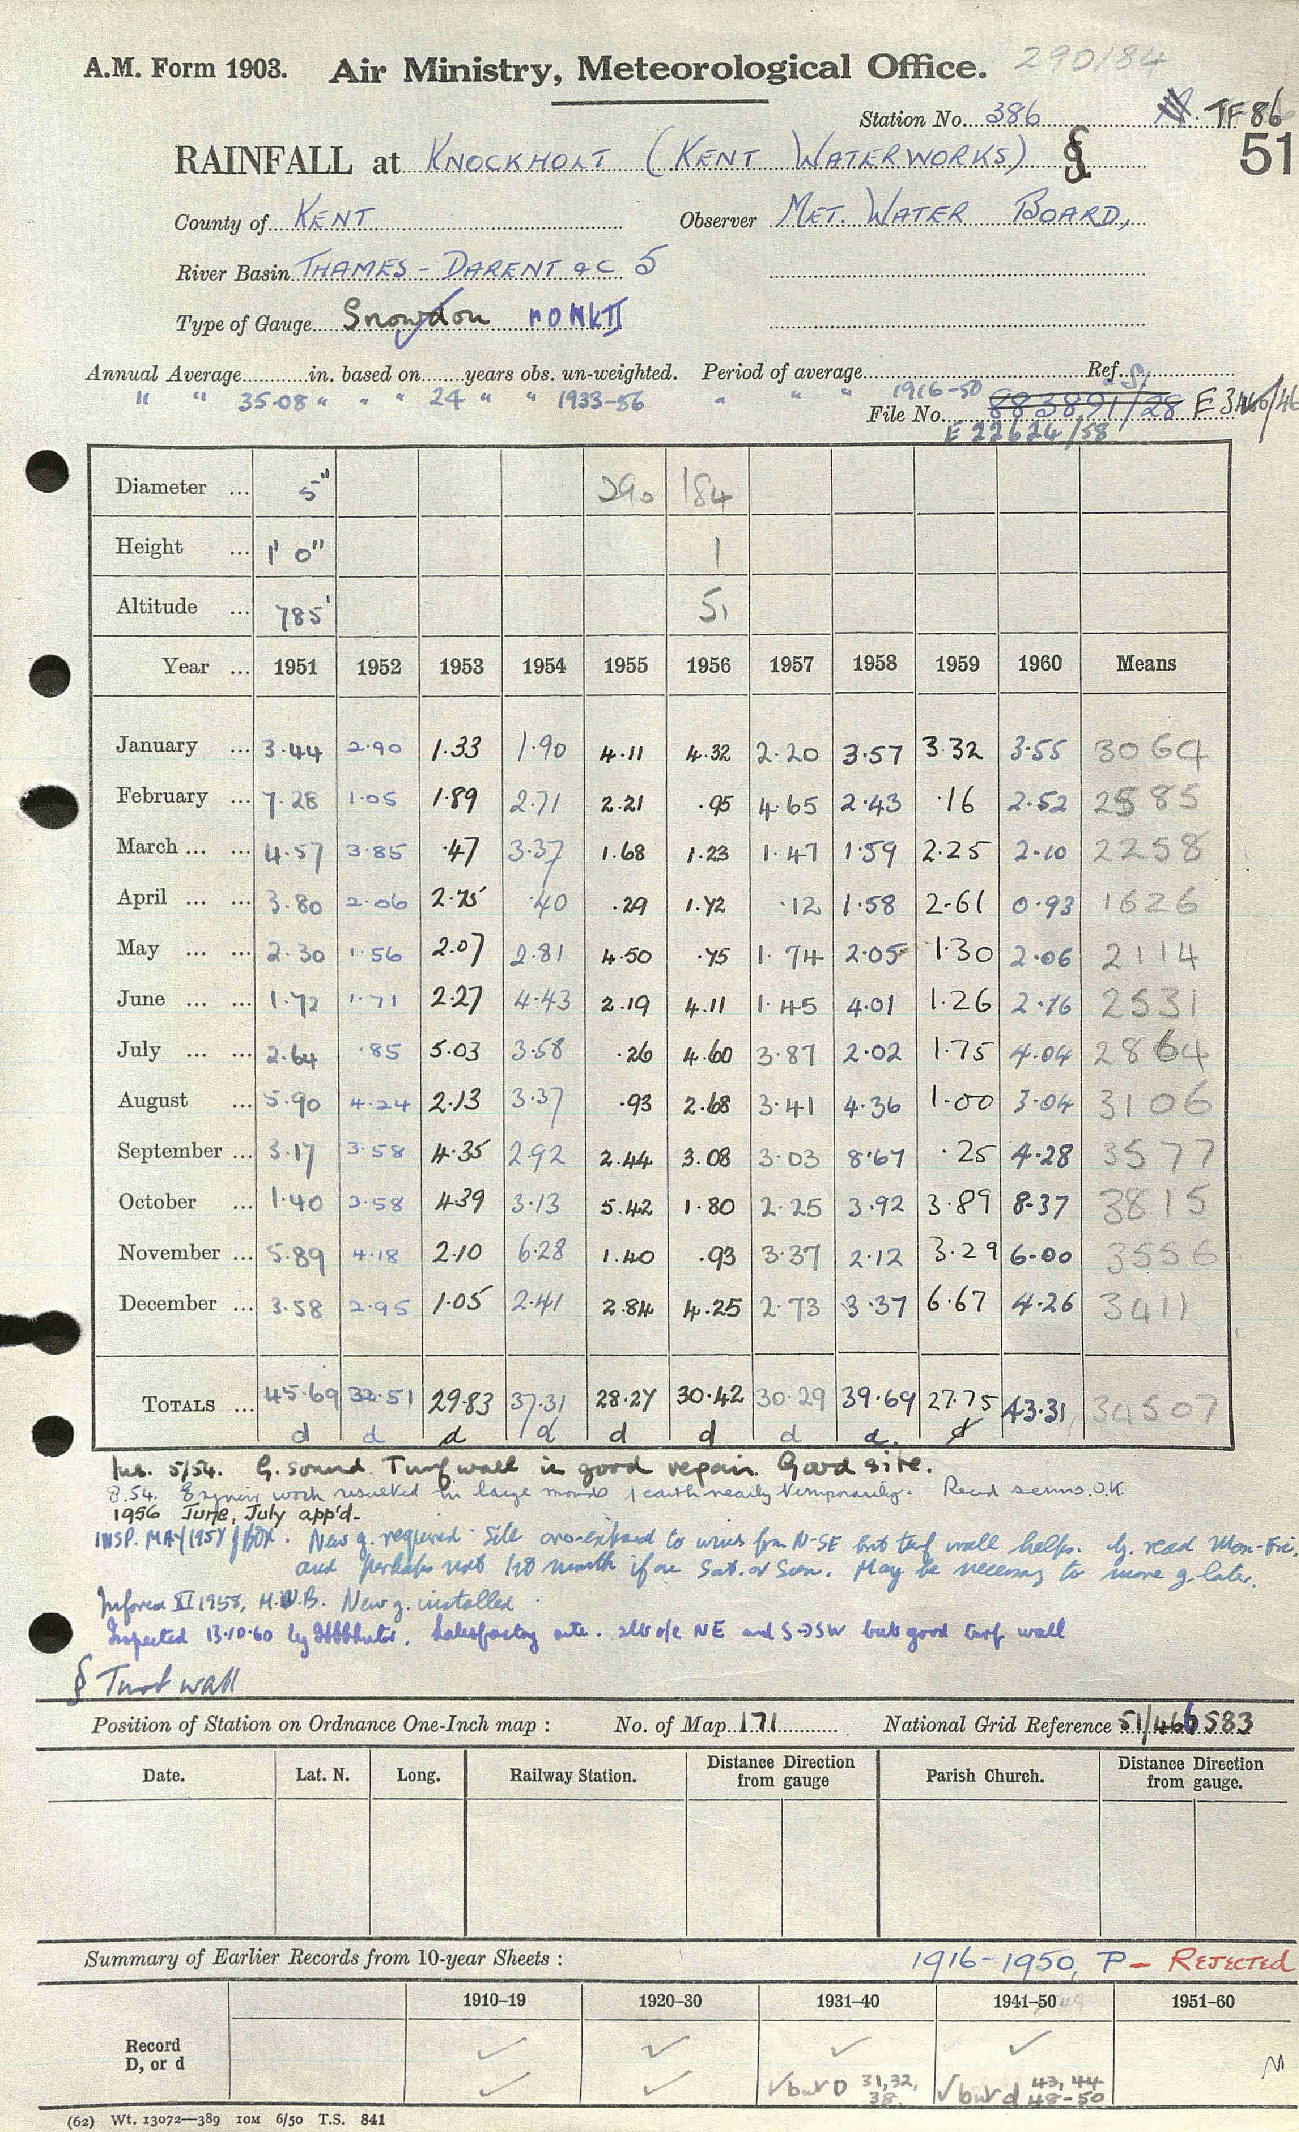 290/84
A.M. Form 1903. Air Ministry, Meteorological Office.
Station No. 386 TF 86
RAINFALL at KNOCKHOLT (KENT WATERWORKS) § 51
County of KENT Observer MET. WATER BOARD,
River Basin THAMES - DARENT &C 5
Type of Gauge Snowdon MO MK II
Annual Average in. based on years obs. un-weighted. Period of average Ref.
" " 35.08 " " " 24 " " 1933-56 " " " 1916-50
File No. 883891/28 E 3466/46
E 22624/58
Diameter ... 5" 290 184
Height ... 1' 0" 1
Altitude ... 785' 51
Year ... 1951 1952 1953 1954 1955 1956 1957 1958 1959 1960 Means
January ... 3.44 2.90 1.33 1.90 4.11 4.32 2.20 3.57 3.32 3.55 3064
February ... 7.28 1.05 1.89 2.71 2.21 .95 4.65 2.43 .16 2.52 2585
March ... ... 4.57 3.85 .47 3.37 1.68 1.23 1.47 1.59 2.25 2.10 2258
April ... ... 3.80 2.06 2.75 .40 .29 1.72 .12 1.58 2.61 0.93 1626
May ... ... 2.30 1.56 2.07 2.81 4.50 .75 1.74 2.05 1.30 2.06 2114
June ... ... 1.72 1.71 2.27 4.43 2.19 4.11 1.45 4.01 1.26 2.16 2531
July ... ... 2.64 .85 5.03 3.58 .26 4.60 3.87 2.02 1.75 4.04 2864
August ... 5.90 4.24 2.13 3.37 .93 2.68 3.41 4.36 1.00 3.04 3106
September ... 3.17 3.58 4.35 2.92 2.44 3.08 3.03 8.67 .25 4.28 3577
October ... 1.40 3.58 4.39 3.13 5.42 1.80 2.25 3.92 3.89 8.37 3815
November ... 5.89 4.18 2.10 6.28 1.40 .93 3.37 2.12 3.29 6.00 3556
December ... 3.58 2.95 1.05 2.41 2.84 4.25 2.73 3.37 6.67 4.26 3411
TOTALS ... 45.69 32.51 29.83 37.31 28.27 30.42 30.29 39.69 27.75 43.31 34507
d d d d d d d d d
Ins. 5/54. G. sound. Turf wall in good repair. Good site.
8.54. work resulted in large mounds of earth nearby temporarily. Read seems O.K
1956 June, July app'd.
INSP. MAY 1957 BOX. New g. required. Site over-exposed to winds from N-SE but turf wall helps. G. read Mon-Fri.
and perhaps not 1st month if on Sat. or Sun. May be necessary to move g. later.
Informed XI 1958, M.W.B. New g. installed
Inspected 13.10.60 by Satisfactory site. o/e NE and S→SW but good turf wall
§ Turf wall
Position of Station on Ordnance One-Inch map : No. of Map 171 National Grid Reference 51/466583
Date. Lat. N. Long. Railway Station. Distance Direction from gauge Parish Church. Distance Direction from gauge.
Summary of Earlier Records from 10-year Sheets : 1916-1950, P - REJECTED
1910–19 1920–30 1931–40 1941–50 49 1951–60
Record ✓ ✓ ✓ ✓
D, or d ✓ ✓ ✓ but D 31, 32, 38. ✓ but d 43, 44 48-50 M
(62) Wt. 13072—389 10M 6/50 T.S. 841